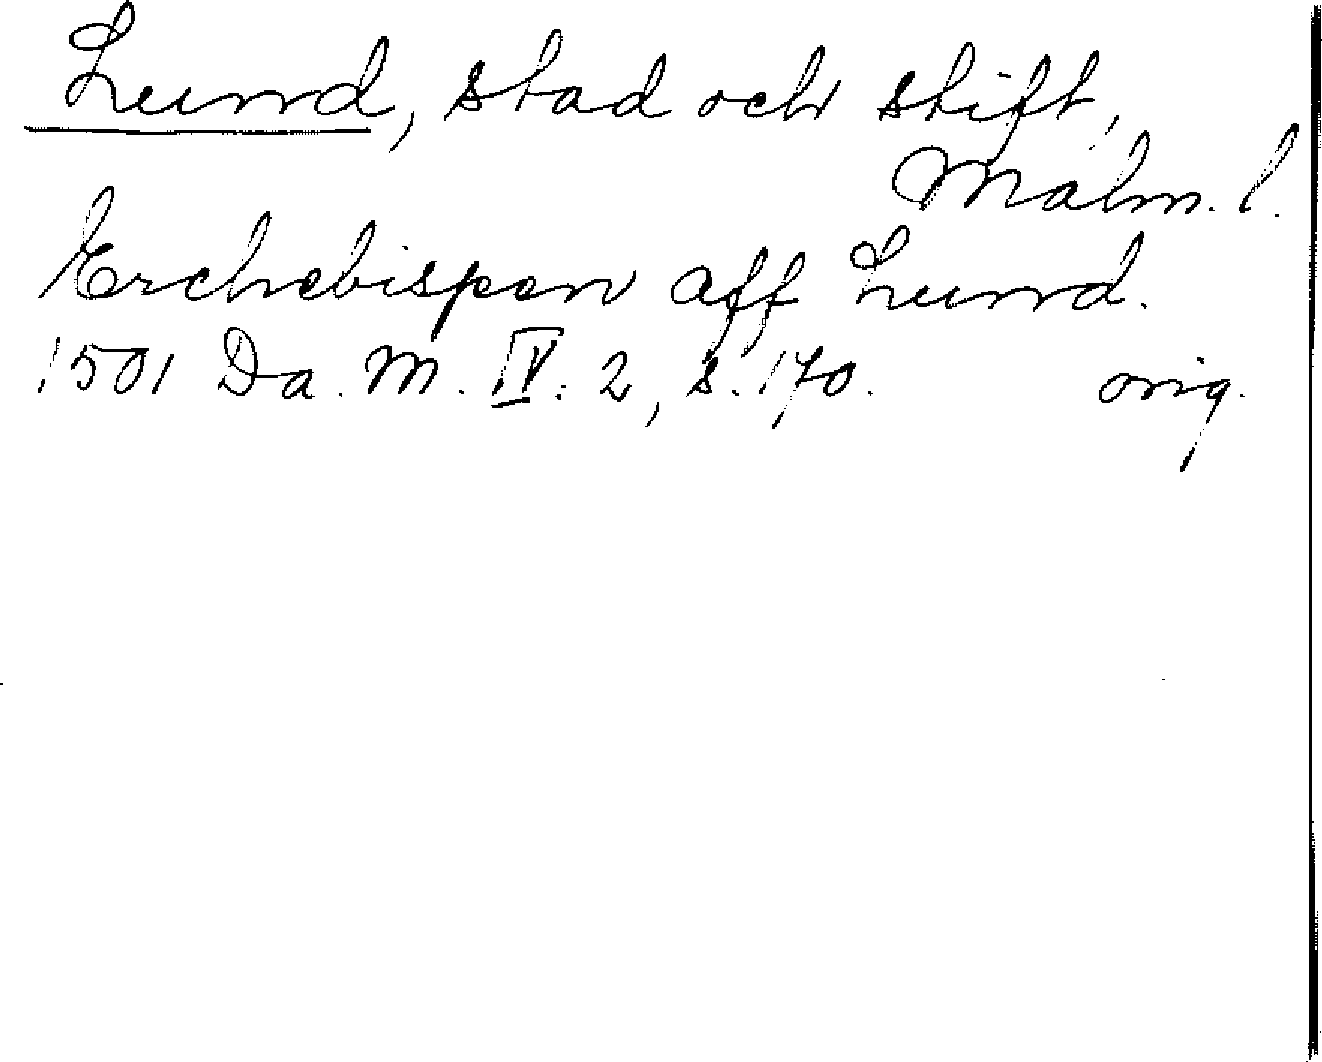 Lund, stad och stift,
Malm. l.
Erchebispen aff Lund.
1501 Da. M. IV. 2, s. 170. orig.